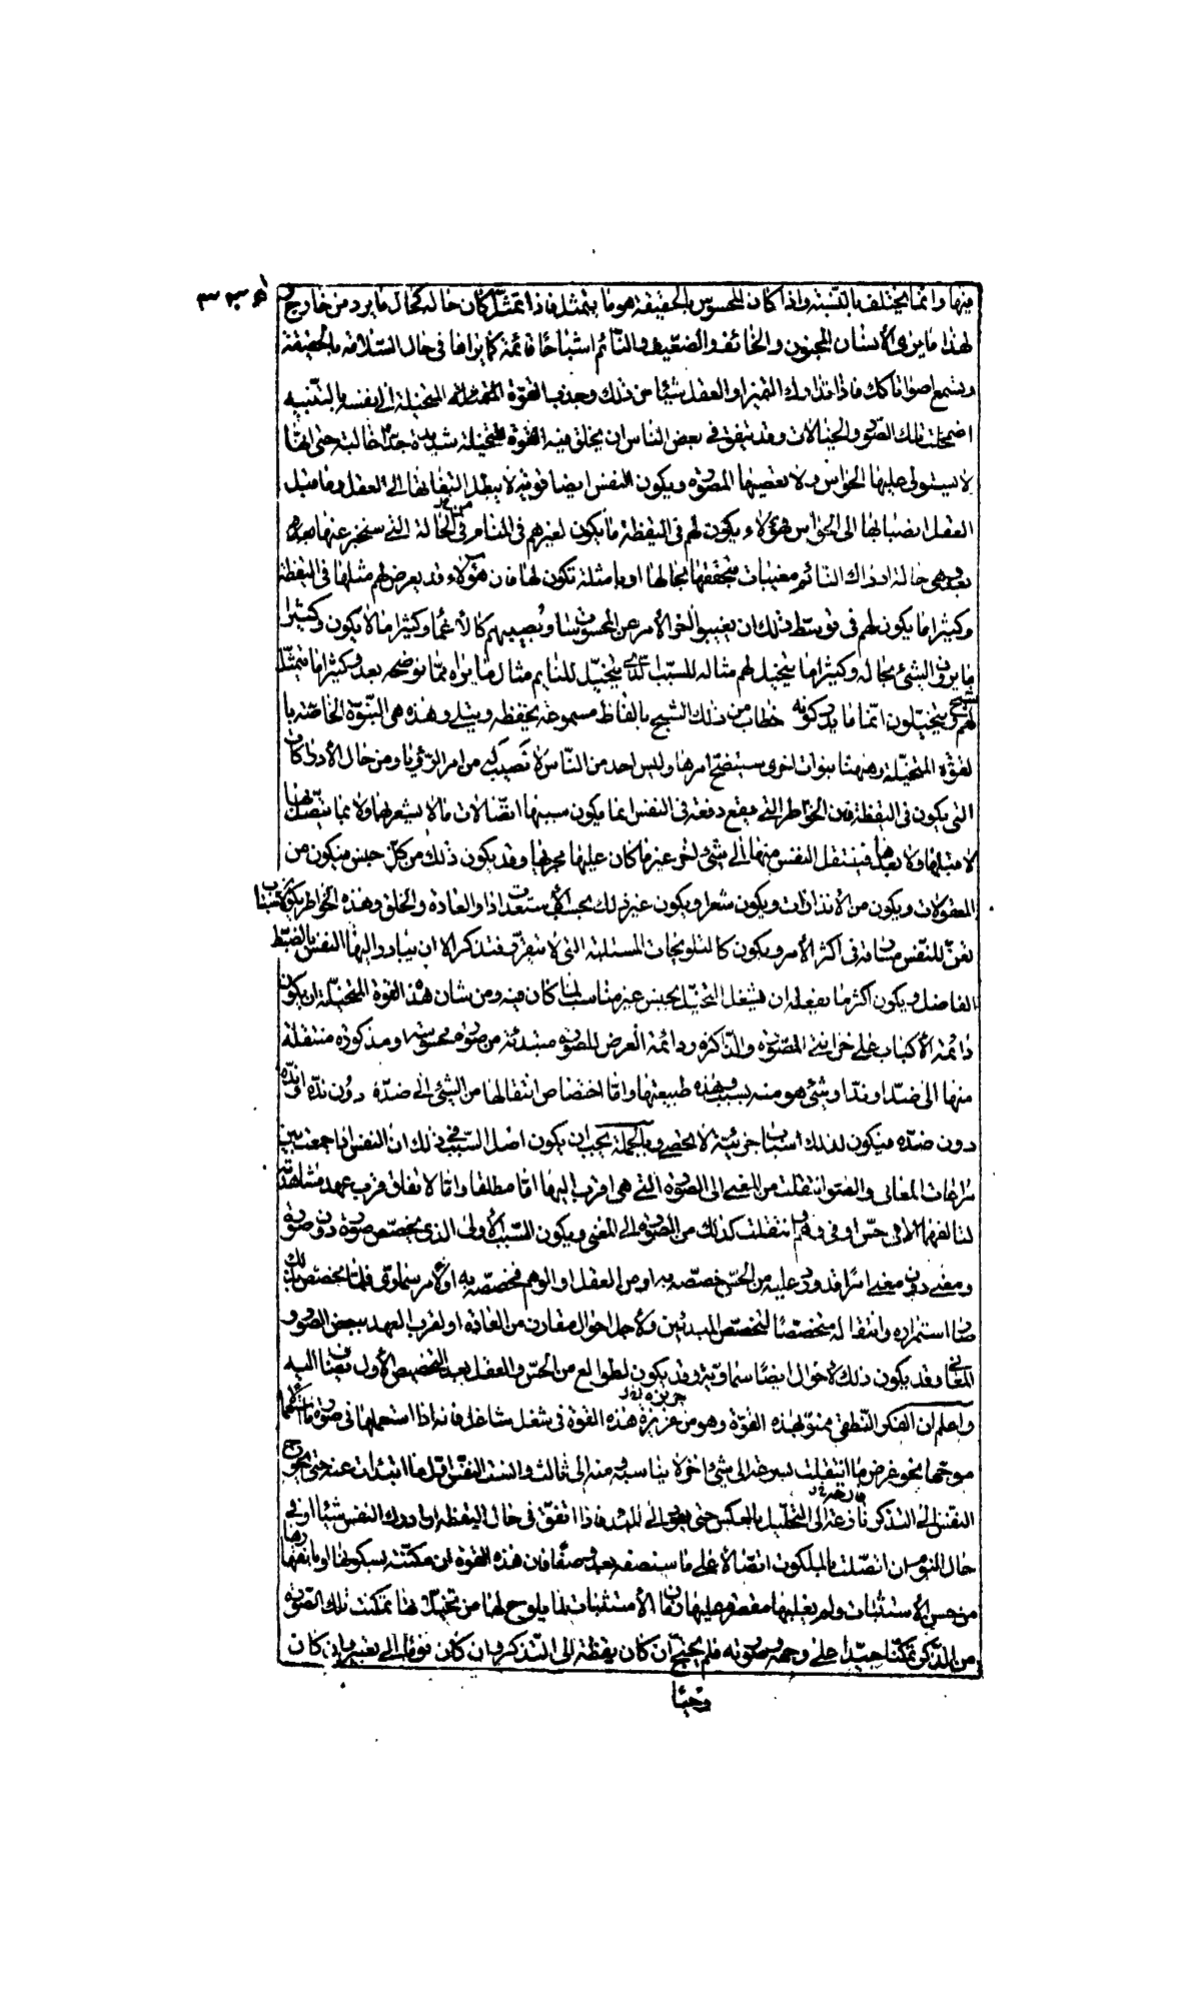 ٣٣٣
منها وانما يختلف بالنسبة واذا كان المحسوس بالحقيقة هو ما يتمثل فاذا تمثل كان حاله كحال ما يرد من خارج و
لهذا ما يرى الانسان المجنون والخائف والضعيف والنائم اشباحًا قائمة كما يراها في حال السلامة بالحقيقة
ويسمع اصواتا كك فاذا تدارك التميز او العقل شيئا من ذلك وجذب القوة المتخيلة الى نفسه بالتنبيه
اضمحلت تلك الصور والخيالات وقد يتفق في بعض الناس ان يخلق فيه القوة المتخيلة شديدة جدّا غالبة حتى انها
لا يستولى عليها الحواس ولا تعصيها المصورة ويكون النفس ايضا قوية لا يبطل التفاتها الى العقل وما قبل
العقل انصبابها الى الحواس فهؤلاء يكون لهم في اليقظة ما يكون لغيرهم في المنام من الحالة التي سنخبر عنها بعد
وهى حالة ادراك النائم مغيبات بتحققها بحالها او بامثلة تكون لها فان هؤلاء قد يعرض لهم مثلها في اليقظة
وكثيرا ما يكون لهم في توسط ذلك ان يغيبوا آخر الأمر عن المحسوسات ويصيبهم كالاغماء وكثيرا ما لا يكون وكثيرا
ما يرون الشئ بحاله وكثيرا ما يتخيل لهم مثاله للسبب الذى يتخيل للنايم مثال ما يراه مما نوضحه بعد وكثيرا ما يتمثل
لهم شبح ويتخيلون انما ما يدركونه خطاب من ذلك الشبح بالفاظ مسموعة يحفظ ويتلى وهذه هى النبوة الخاصة با
لقوة المتخيلة وههنا نبوات اخرى سيتضح امرها وليس احد من الناس لا نصيب له من امر الرؤيا ومن حال الادراكات
التى يكون في اليقظة فان الخواطر التي يقع دفعة في النفس انما يكون سببها اتصالات ما لا يشعر بها ولا بما يتصل بها
لا قبلها ولا بعدها فينتقل النفس منها الى شئ اخر غير ما كان عليها مجريها وقد يكون ذلك من كل جنس فيكون من
المعقولات ويكون من الانذارات ويكون شعرا ويكون غير ذلك بحسب الاستعداد والعادة والخلق وهذه الخواطر يكون لاسباب
تعنّ للنفس مسارقة في اكثر الأمر ويكون كالتلويحات المستلبة التى لا يتقرر فتذكر الا ان يبادر اليها النفس بالضبط
الفاضل ويكون اكثر ما يفعله ان يشغل التخيل بجنس غير مناسب لما كان فيه ومن شان هذه القوة المتخيلة ان يكون
دائمة الأكباب على خزانتى المصورة والذاكرة ودائمة العرض للصور مبتدئة من صورة محسوسة او مذكورة منتقلة
منها الى ضد او ند او شئ هو منه بسبب وهذه طبيعتها واما اختصاص انتقالها من الشئ الى ضدّه دون ندّه او ندّه
دون ضدّه فيكون لذلك اسباب جزئية لا تحصى وبالجملة يجب ان يكون اصل السبب في ذلك ان النفس اذا جمعت بين
مراعات المعانى والصور انتقلت من المعنى الى الصورة التى هى اقرب اليها اما مطلقا واما لاتفاق قرب عهد مشاهدته
لتالفهما في حس او في وهم انتقلت كذلك من الصورة الى المعنى ويكون السبب الأولى الذى يخصص صورة دون صورة
ومعنى دون معنى امرا قد ورد عليه من الحس خصصه به او من العقل او الوهم فخصصه به او لامر سماوى فلما تخصص بذلك
صار استمراره وانتقاله متخصصًا لتخصص المبدئين ولأجل احوال مقارن من العادة او لقرب العهد ببعض الصور و
المعانى وقد يكون ذلك لاحوال ايضًا سماوية وقد يكون لطوالع من الحس والعقل بعد التخصيص الأول ينضاف اليه
واعلم ان الفكر النطقي ممنوّ بهذه القوة وهو من غريزة هذه القوة في شغل شاغل فانه اذا استعملها في صورة ما استعمالا
موجها نحو غرض ما انتقلت بسرعة الى شئ اخر لا يناسبه ومنه الى ثالث وانست النفس اول ما ابتدات عنه حتى تحوج
النفس الى التذكر فازعة الى التحليل بالعكس حتى يعود الى المبدء فاذا اتفق في حال اليقظة ان ادرك النفس شيئا او في
حال النوم ان اتصلت بالملكوت اتصالا على ما سنصفه بعد وصفا فان هذه القوة ان مكنته بسكونها او بانقهارها
من حسن الأستثبات ولم يغلبها مقصرة عليها زمان الأستثبات لما يلوح لها من تخيلاتها تمكنت تلك الصورة
من الذكر تمكنا جيدا على وجهه وصورته فلم يحتج ان كان يقظة الى التذكر وان كان نوما الى تعبير وان كان
وحيا